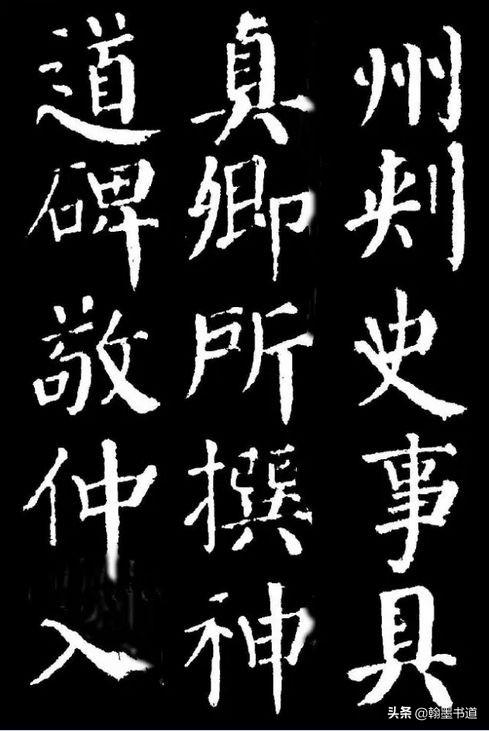 州刺史事具
真卿所撰神
道碑敬仲入
头条 @翰墨书道